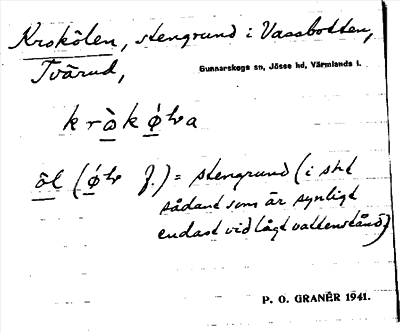 Krokölen, stengrund i Vassbotten,
Tvärud,
Gunnarskogs sn, Jösse hd, Värmlands l.
öl
= stengrund (i sht
sådant som är synligt
endast vid lågt vattenstånd)
P. O. GRANÉR 1941.